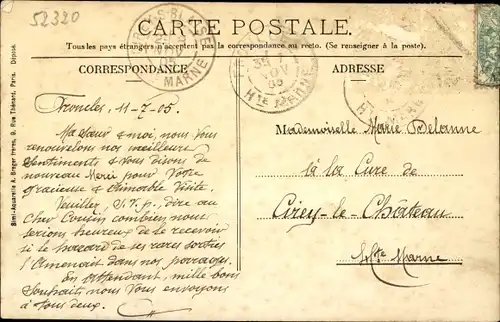 52320
CARTE POSTALE.
Tous les pays étrangers n'acceptent pas la correspondance au recto. (Se renseigner à la poste).
CORRESPONDANCE
Froncles, 11-7-05.
Ma Sœur & moi, nous Vous
renouvelons nos meilleurs
Sentiments & Vous disons de
nouveau Merci pour Votre
gracieuse & aimable Visite.
Veuillez, S.V.p., dire au
cher Cousin combien nous
serions heureux de le recevoir
si le hasard de ses rares sorties
l'Amenait dans nos parages.
En Attendant, mille bons
Souhaits nous Vous envoyons
à tous deux.
ADRESSE
Mademoiselle Marie Delanne
à la Cure de
Cirey-le-Château
Hte Marne
MARNE
Hte MARNE
Simi-Aquarelle A. Breger frères, 9, Rue Thénard, Paris. Déposé.